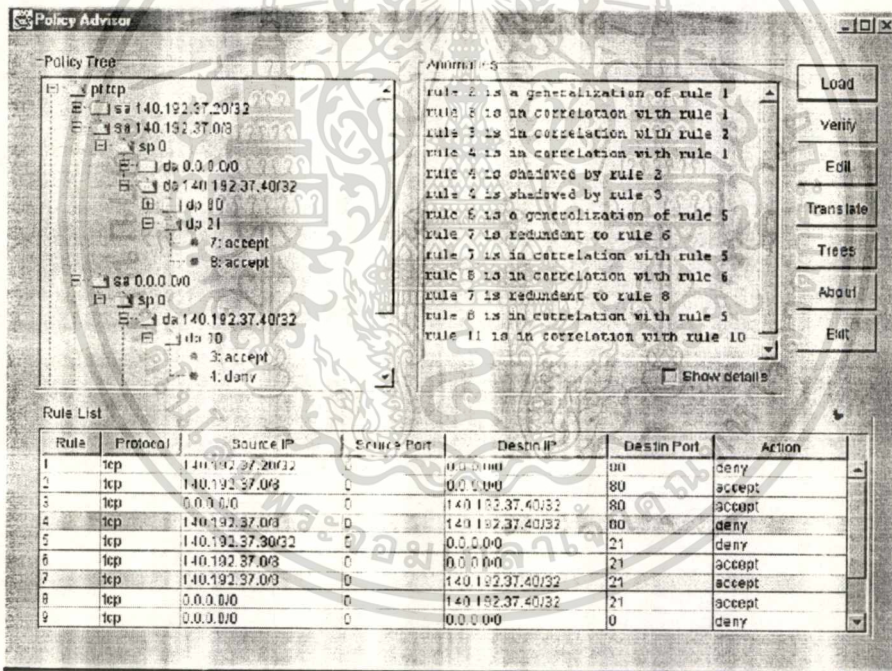 Policy Advisor
Policy Tree
pt tcp
sa 140.192.37.20/32
sa 140.192.37.0/8
sp 0
da 0.0.0.0/0
da 140.192.37.40/32
dp 80
dp 21
7: accept
8: accept
sa 0.0.0.0/0
sp 0
da 140.192.37.40/32
3: accept
4: deny
Anomalies
rule 2 is a generalization of rule 1
rule 3 is in correlation with rule 1
rule 3 is in correlation with rule 2
rule 4 is in correlation with rule 1
rule 4 is shadowed by rule 2
rule 4 is shadowed by rule 3
rule 6 is a generalization of rule 5
rule 7 is redundant to rule 6
rule 7 is in correlation with rule 5
rule 8 is in correlation with rule 6
rule 7 is redundant to rule 8
rule 8 is in correlation with rule 5
rule 11 is in correlation with rule 10
Show details
Load
Verify
Edit
Translate
Trees
About
Exit
Rule List
Rule Protocol Source IP Source Port Destin IP Destin Port Action
1 tcp 140.192.37.20/32 0 0.0.0.0/0 80 deny
2 tcp 140.192.37.0/8 0 0.0.0.0/0 80 accept
3 tcp 0.0.0.0/0 0 140.192.37.40/32 80 accept
4 tcp 140.192.37.0/8 0 140.192.37.40/32 80 deny
5 tcp 140.192.37.30/32 0 0.0.0.0/0 21 deny
6 tcp 140.192.37.0/8 0 0.0.0.0/0 21 accept
7 tcp 140.192.37.0/8 0 140.192.37.40/32 21 accept
8 tcp 0.0.0.0/0 0 140.192.37.40/32 21 accept
9 tcp 0.0.0.0/0 0 0.0.0.0/0 0 deny